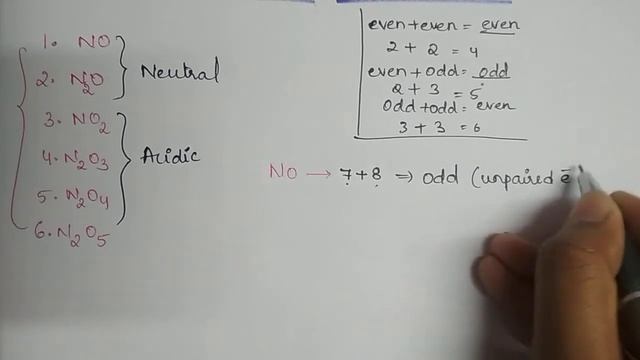 1. NO
2. N2O
Neutral
3. NO2
4. N2O3
5. N2O4
6. N2O5
Acidic
even+even = even
2 + 2 = 4
even+odd = odd
2 + 3 = 5
odd+odd = even
3 + 3 = 6
NO → 7+8 ⇒ odd (unpaired e̅